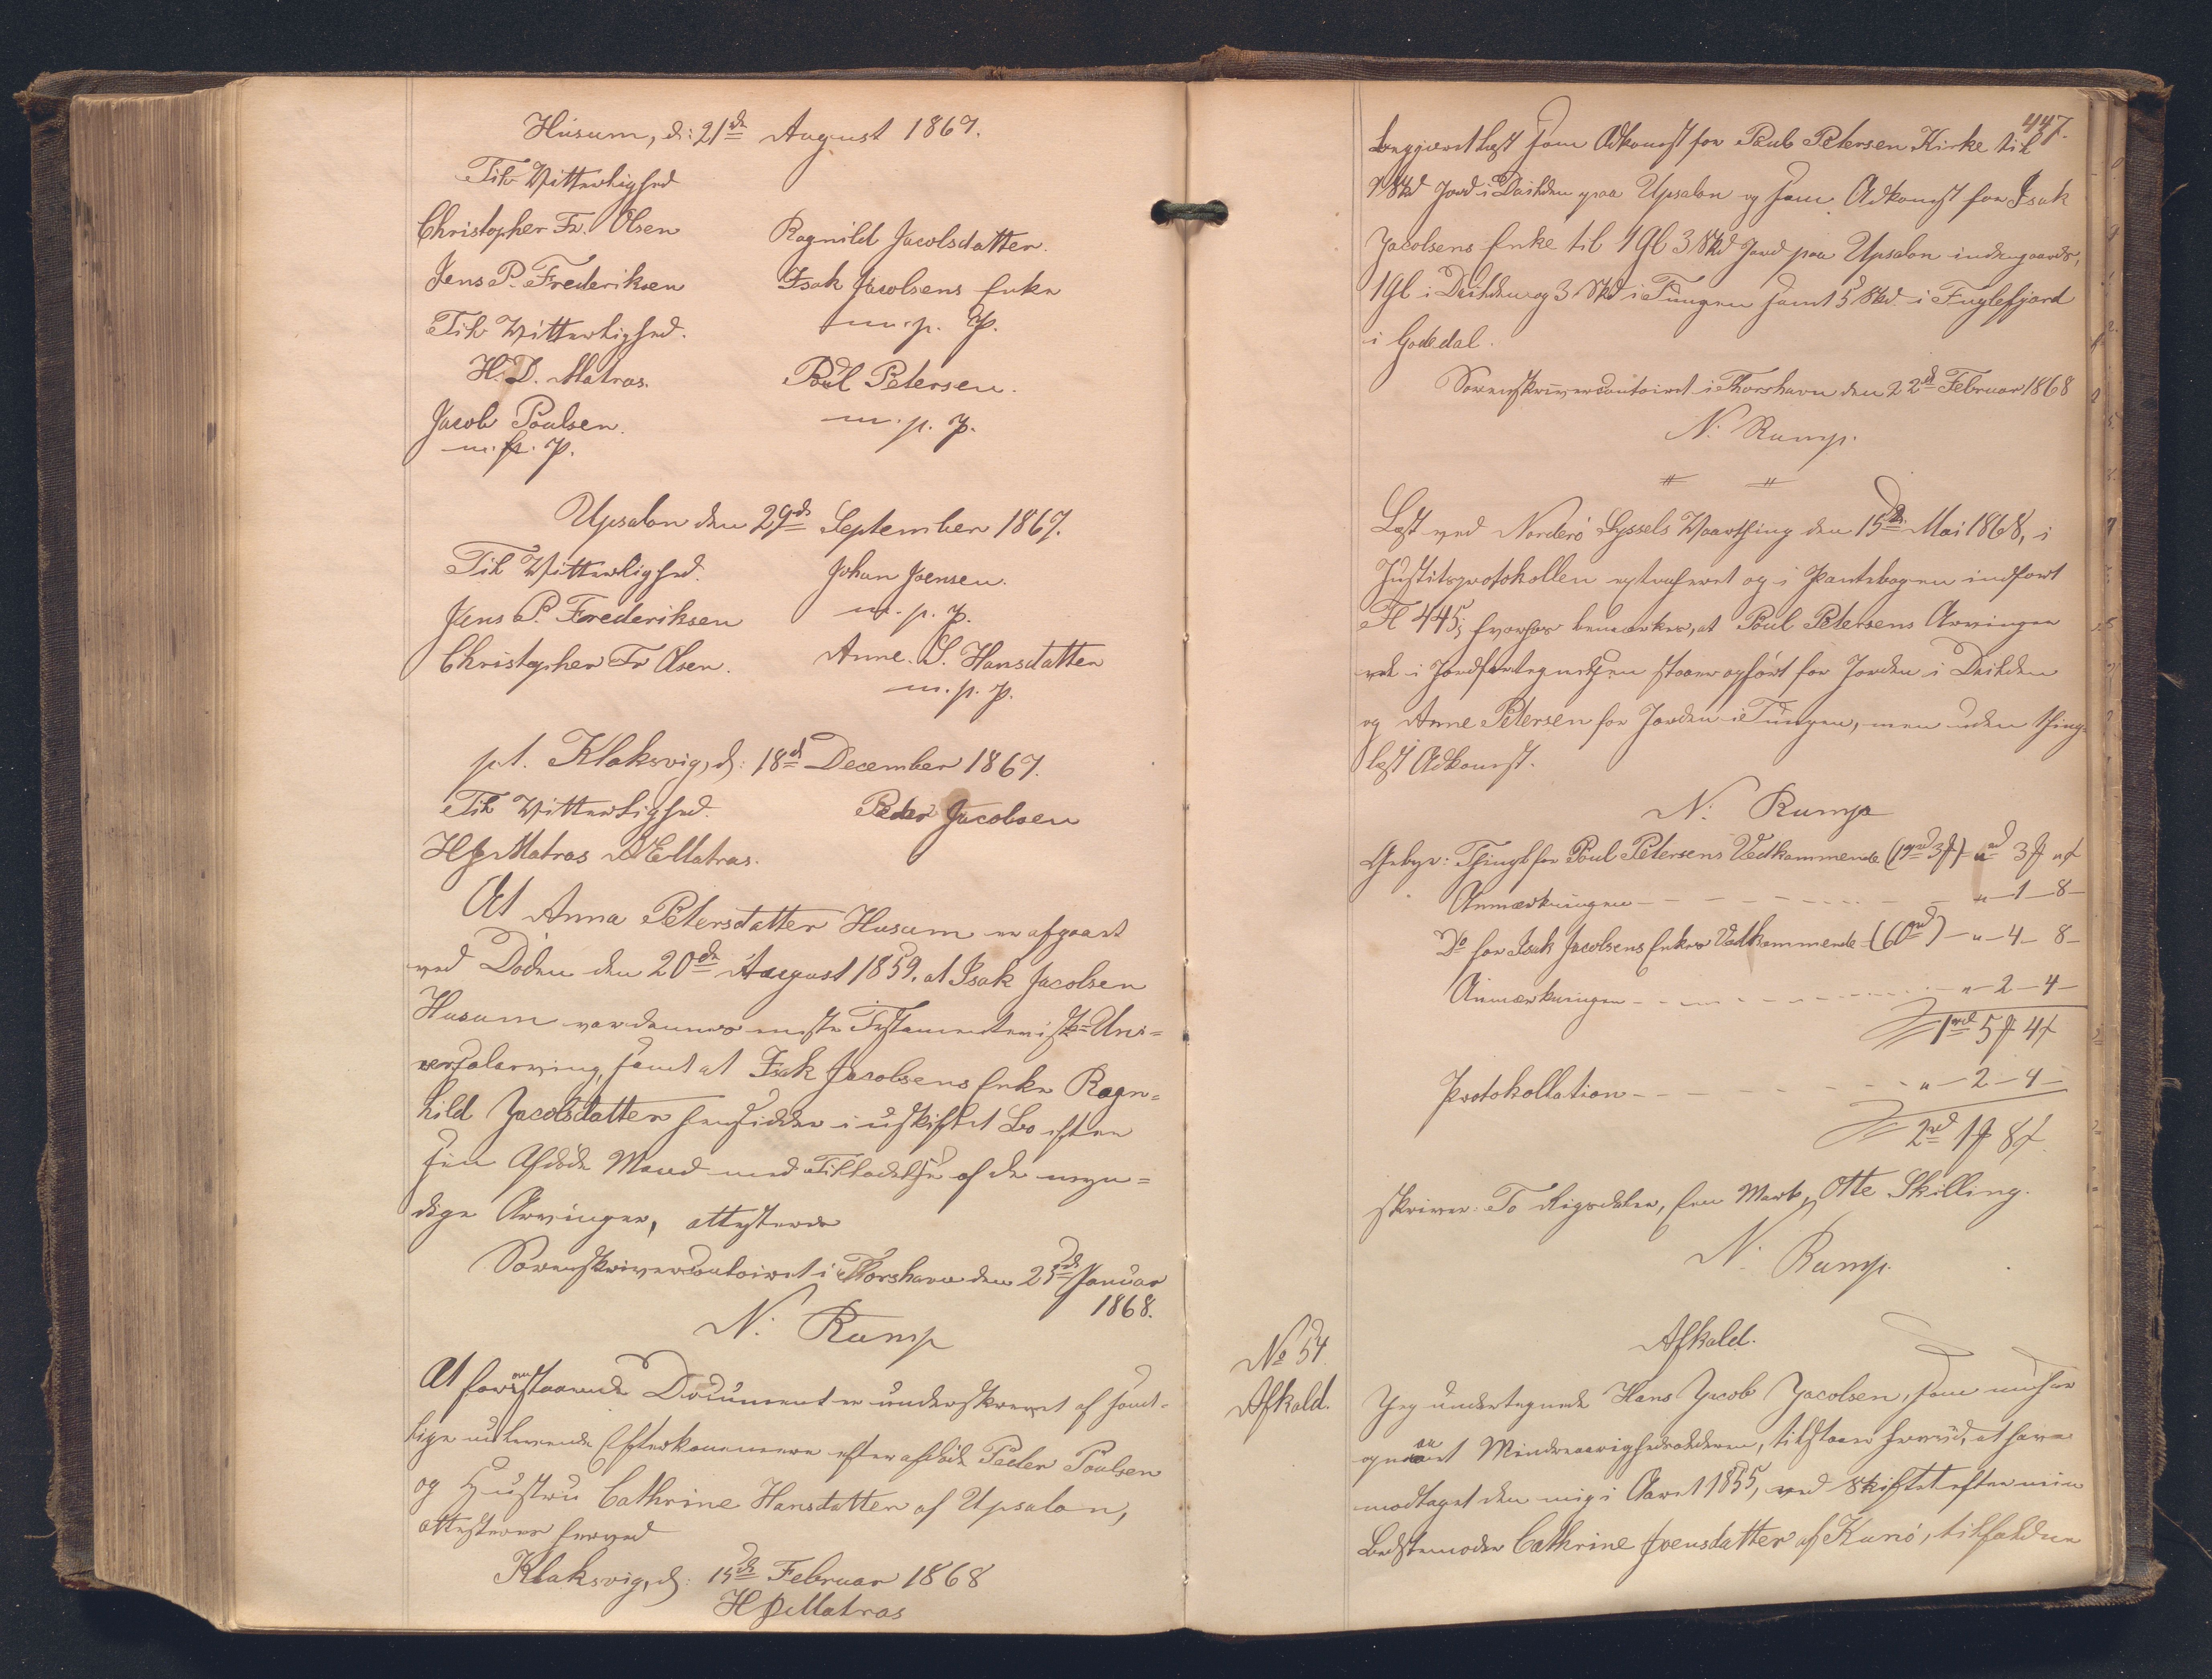 Husum, d: 21de August 1867.
Til Vitterlighed
Christopher Fr. Olsen Ragnild Jacobsdatter.
Jens P. Frederiksen Isak Jacobsens Enke
Til Vitterlighed. m. p. P.
H. D. Matras. Poul Petersen.
Jacob Poulsen. m. p. P.
m. p. P.
Upsalon den 29de September 1867.
Til Vitterlighed. Johan Joensen.
Jens P. Frederiksen m. p. P.
Christopher Fr Olsen. Anne S. Hansdatter
m. p. P.
p.t. Klaksvig, d: 18de December 1867.
Til Vitterlighed. Peder Jacobsen
HJMatras DEMatras.
At Anna Petersdatter Husum er afgaaet
ved Døden den 20de August 1859. at Isak Jacobsen
Husum var dennes eneste Testamentariske Uni=
versalarving, samt at Isak Jacobsens Enke Ragn=
hild Jacobsdatter hensidder i uskiftet Bo efter
sin Afdøde Mand med Tilladelse af de myn=
dige Arvinger, attesteres
Sorenskrivercontoiret i Thorshavn den 25de Januar
1868.
N. Rump
At foranstaaende Document er underskrevet af samt=
lige nulevende Efterkommere efter afdøde Peder Poulsen
og Hustru Cathrine Hansdatter af Upsalon,
attesteres herved
Klaksvig, d: 15de Februar 1868
HJMatras
447.
Begjæret læst som Adkomst for Poul Petersen Kirke til
Skd Jord i Deilden paa Upsalon og som Adkomst for Isak
Jacobsens Enke til 1 Gl 3 Skd Jord paa Upsalon indengaards,
1 Gl i Deilden og 3 Skd i Tungen samt 5 Skd. i Fuglefjord
i Godedal.
Sorenskrivercontoiret i Thorshavn den 22de Februar 1868
N. Rump.
" "
Læst ved Norderø Syssels Vaarthing den 15de Mai 1868, i
Justitsprotokollen extraheret og i Pantebogen indført
Fl 445; hvorhos bemærkes, at Poul Petersens Arvinger
vel i Jordfortegnelsen staaer opført for Jorden i Deilden
og Anne Petersen for Jorden i Tungen, men uden thing=
læst Adkomst.
N. Rump
Gebyr: Thingl for Poul Petersens Vedkommende 3 
Anmærkningen - - - " - 1 - 8 -
Do for Isak Jacobsens Enkes Vedkommende (60rd) - " - 4 - 8 -
Anmærkningen - - - " - 2 - 4 -
1rd 5 ₻ 4 ß
Protokollation - - - " - 2 - 4 -
2rd 1 ₻ 8 ß
skriver: To Rigsdaler, Een Mark, Otte Skilling.
N. Rump.
No 54. Afkald.
Afkald. Jeg undertegnede Hans Jacob Jacobsen, som nu har
opnaaet Mindreaarighedsalderen, tilstaaer herved, at have
modtaget den mig i Aaret 1855, ved Skiftet efter min
Bedstemoder Cathrine Joensdatter af Kunø, tilfaldne